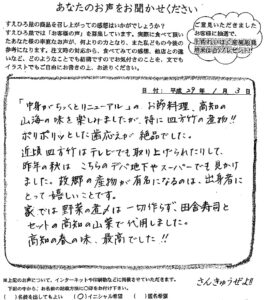 あなたのお声をお聞かせください
すえひろ屋の商品を召し上がっての感想はいかがでしょうか?
すえひろ屋では「お客様の声」を募集しています。実際に食べて頂いた
あなた様の率直なお声が、何よりの力となり、また私どもの今後の
参考になります。注文時の対応から、食べてみての感想、配送との違
いなど、どのようなことでも結構ですのでお気付きのことを、文でも
イラストでもご自由にお書きの上、お送りください。
ご意見いただきました
お客様に抽選で、
日付: 平成29年1月3日
「中身がちょっとリニューアル」の お節料理、高知の
山海の味を楽しみましたが、特に四方竹の煮物!!
ポリポリッとした歯応えが絶品でした。
近頃四方竹はテレビでも取り上げられたりして、
昨年の秋は こちらのデパ地下やスーパーでも見かけ
ました。故郷の産物が有名になるのは、出身者に
とって嬉しいことです。
家では野菜の煮〆は一切作らず、田舎寿司と
セットの高知の山菜で代用しました。
高知の春の味、最高でした!!
※上記のお声について、インターネットや印刷物などに掲載させていただきます。
下記の中から、お名前の掲載方法に〇印をお付けください。
( )名前を出してもよい (〇)イニシャル希望 ( )匿名希望
さんきゅうぜよ!!